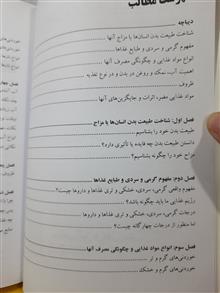 فهرست مطالب
دیباچه
شناخت طبیعت بدن انسان‌ها یا مزاج آنها
مفهوم گرمی و سردی و طبایع غذاها
انواع مواد غذایی و چگونگی مصرف آنها
اهمیت آب، نمک و روغن در بدن و در نوع تغذیه
ظروف
مواد غذایی مضر، اثرات و جایگزین‌های آنها
فصل اول: شناخت طبیعت بدن انسان‌ها یا مزاج
طبیعت بدن خود را بشناسیم
دانستن طبیعت بدن چه فایده یا تأثیری دارد؟
مزاج خود را چگونه بشناسیم؟
فصل دوم: مفهوم گرمی و سردی و طبایع غذاها
مفهوم واقعی گرمی، سردی، خشکی و تری غذاها و داروها چیست؟
رژیم غذایی ما باید چگونه باشد؟
درجات گرمی، سردی، خشکی و تری غذاها و داروها
اما منظور از درجات چهارگانه چیست؟
فصل سوم: انواع مواد غذایی و چگونگی مصرف آنها
خوردنی‌های گرم و تر
خوردنی‌های گرم و خشک